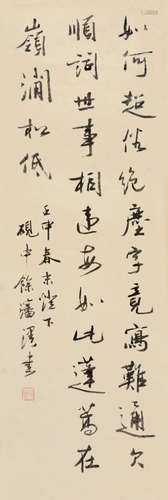 如何超俗絕塵字竟寫難通欠
順詞世事相違每如此蓬蒿在
嶺澗松低
壬申春末燈下
硯中餘瀋漫書